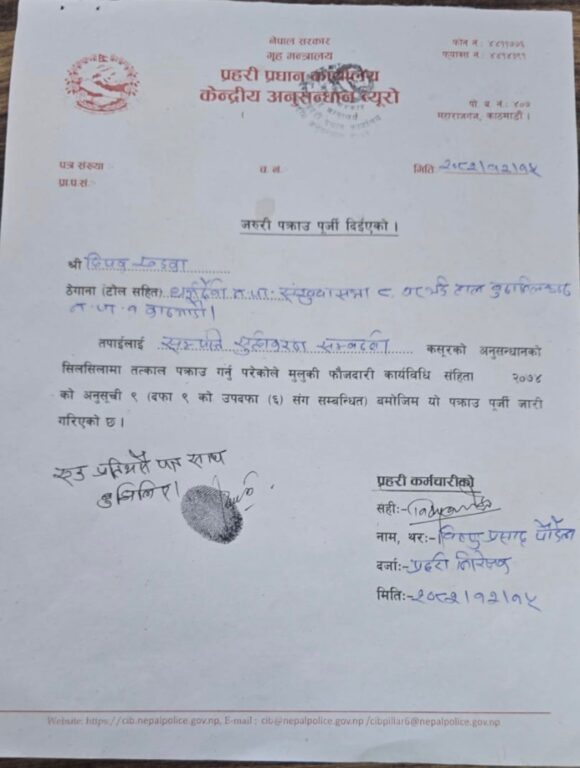 नेपाल सरकार
गृह मन्त्रालय
प्रहरी प्रधान कार्यालय
केन्द्रीय अनुसन्धान ब्यूरो
फोन नं :
फ्याक्स नं :
पो. ब. नं.: ४०७
महाराजगंज, काठमाडौं ।
पत्र संख्या :-
च. नं.
मिति २०८२।१२।१५
प्रा.प.सं:-
जरुरी पक्राउ पूर्जी दिईएको ।
श्री दिपक
ठेगाना (टोल सहित) धर्मदेवी न.पा. संखुवासभा ८ हाल बुढानिलकण्ठ
न.पा. काठमाडौं।
तपाईलाई सम्पत्ति शुद्धिकरण सम्बन्धी कसूरको अनुसन्धानको
सिलसिलामा तत्काल पक्राउ गर्नु परेकोले मुलुकी फौजदारी कार्यविधि संहिता २०७४
को अनुसूची ९ (दफा ९ को उपदफा (६) संग सम्बन्धित) बमोजिम यो पक्राउ पूर्जी जारी
गरिएको छ ।
एक प्रति मैले
बुझिलिए।
प्रहरी कर्मचारीको
सही:-
नाम, थर:- विष्णु प्रसाद पौडेल
दर्जा:- प्रहरी निरीक्षक
मिति:- २०८२।१२।१५
Website: https://cib.nepalpolice.gov.np, E-mail : cib@nepalpolice.gov.np /cibpillar6@nepalpolice.gov.np